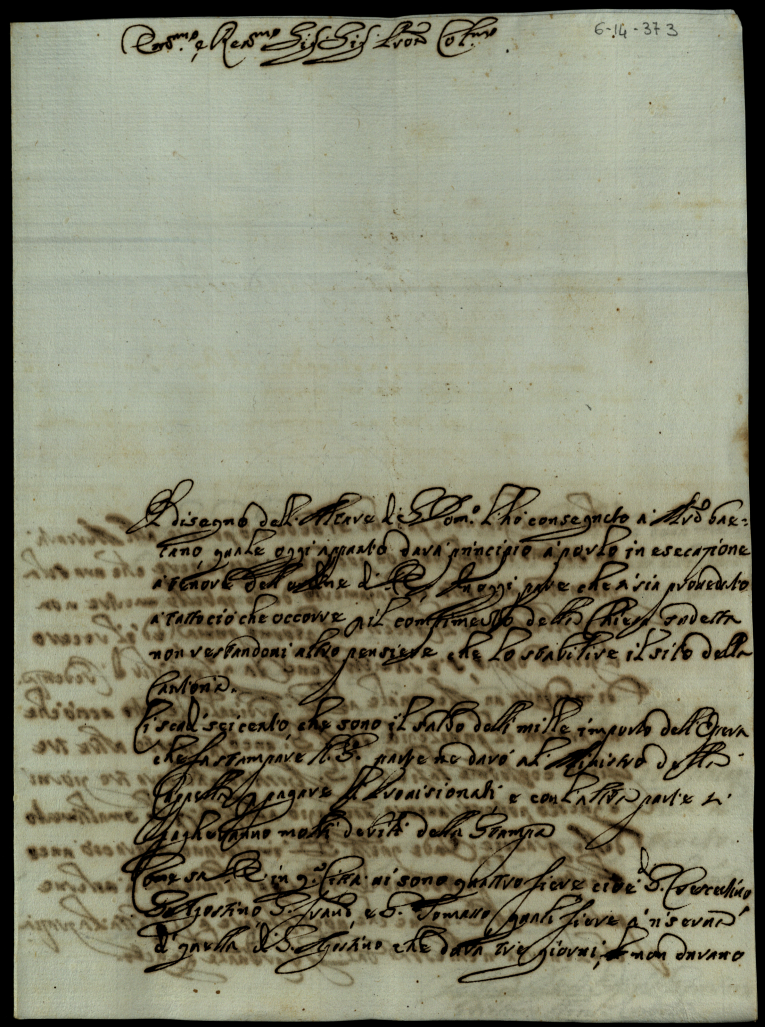 6-14-373
Em.mo e Rev.mo Sig. Sig. Pron Col.mo
Il disegno dell'Altare di S. Dom.co l'hò consegnato à
tano quale oggi appunto darà principio a porlo in esecuzione
a tenore dell'ordine di in oggi pare che si sia proveduto
a tutto ciò che occorre p il compimento della Chiesa sudetta
non restandomi altro pensiere che lo stabilire il sito della
Cantoria.
Li scudi seicento, che sono il saldo delli mille importo dell'Opera
che fà stampare il parte ne darò al Ministro della
Cappella p pagare li Provisionati e con l'altra parte si
pagheranno molti debiti della Stampa
Come sà in q.a Città vi sono quattro fiere cioè di S.
S. Agostino S. e S. Tomaso quali fiere a riserva
di quella di S. Agostino che dura tre giorni, non durano